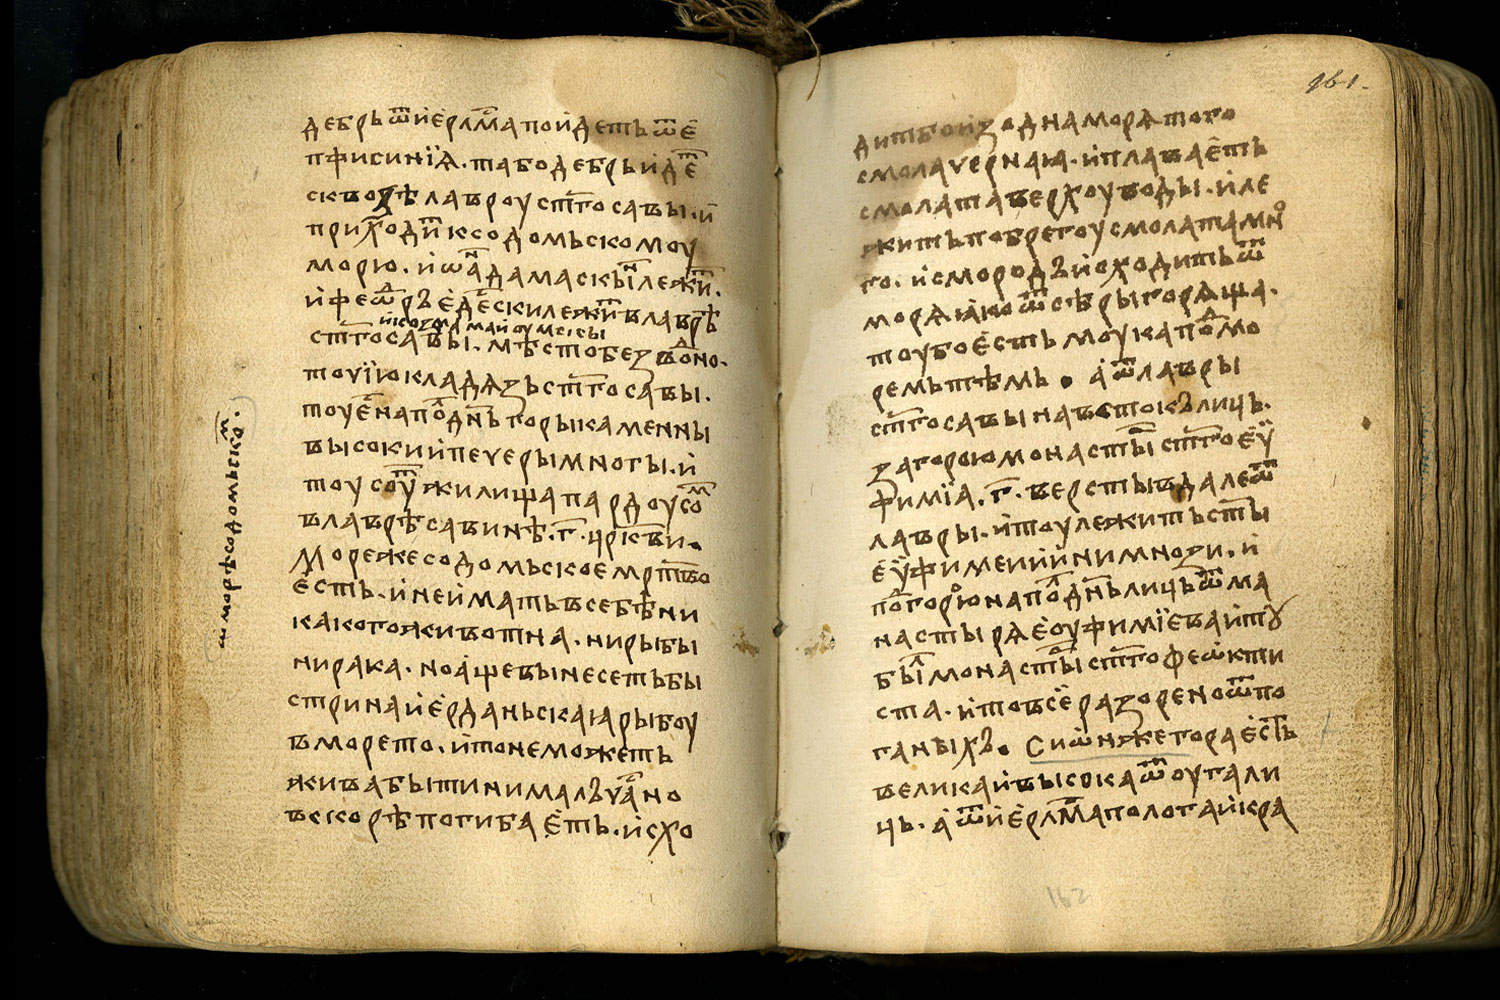 дебрьѿиерл҃мапоидетьѿе
пфисиниꙗ. табодебрьиде
сквозѣлавроуст҃госавы. и
приходи҇ксодомьскомоу
морю. иѡⷩадамаскыⷩлежи҇.
ифеѡⷣръедескилежи҇влаврѣ
икозмамаиоумьсїы
ст҃госавы. мѣстобезвоⷣно.
тоуїюкладязьст҃госавы.
тоуеⷭнапоⷧднь горыкаменны
высокиипечерымноты. и
тоусоу҇жилищапардоусоⷨ
влаврѣсавинѣ. г҃. цркⷡви.
Морежесодомьскоемртⷡво
есть. инеиматьвсебѣни
какогоживотна. нирыбы
нирака. ноащебынесетьбы
стринаиерданьскаꙗрыбоу
вморето. итонеможеть
живабытинималъчаⷭно
вскорѣпогибаеть. исхо
ѿ
морѣсодомьскѡ.
161.
дитбоизоднаморятого
смолачернаꙗ. иплаваеть
смолатаверхоуводы. иле
житьпобрегоусмолатамнⷪ
го. исмородъисходитьѿ
моряꙗкоѿсѣрыгоряща.
тоубоестьмоукапоⷣмо
ремьтѣмь. аѿлавры
ст҃госавынавстокълиць.
загороюмонастыⷬст҃гоеу
фимїа. г҃. верстывдалеѿ
лавры. итоулежитьст҃ы
еуфимеииинимнози. и
поⷣгорⷪюнапоⷧдньлицьѿма
настыряеоуфимїеваиту
быⷧмонастыⷬст҃гофеѡкти
ста. итовсеразореноѿпо
ганыхъ. Сиѡнжегораесть
великаивысокаѿоугали
ць. аѿиерл҃мапологаикра
162